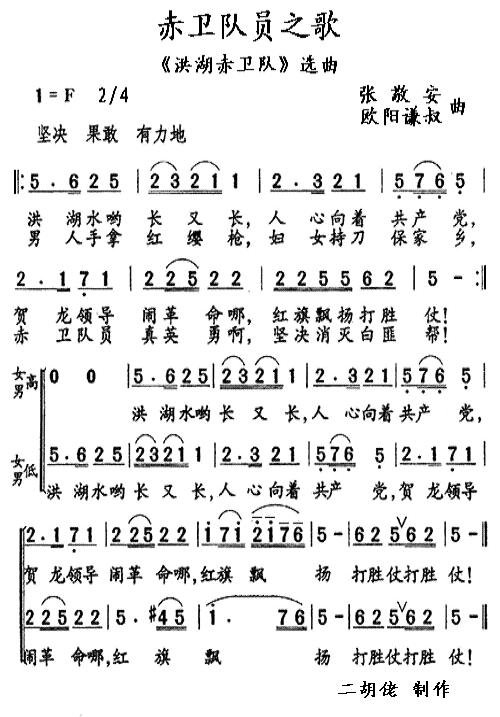 赤卫队员之歌
《洪湖赤卫队》选曲
1=F 2/4
张敬安
欧阳谦叔 曲
坚决 果敢 有力地
‖: 5·625 | 23211 | 2·321 | 5765 |
洪 湖水哟 长 又 长, 人 心向着 共产 党,
男 人手拿 红 缨 枪, 妇 女持刀 保家 乡,
2·171 | 22522 | 225562 | 5- :‖
贺 龙领导 闹革 命哪, 红旗飘扬打胜 仗!
赤 卫队员 真英 勇啊, 坚决消灭白匪 帮!
女男高 0 0 | 5·625 | 23211 | 2·321 | 5765 |
洪 湖水哟 长 又 长, 人 心向着 共产 党,
女男低 5·625 | 23211 | 2·321 | 5765 | 2·171 |
洪 湖水哟 长 又 长, 人 心向着 共产 党, 贺 龙领导
2·171 | 22522 | 1712176 | 5- | 6256 62 | 5- ‖
贺 龙领导 闹革 命哪, 红旗 飘 扬 打胜仗打胜 仗!
22522 | 5·#45 | 1·76 | 5- | 6256 62 | 5- ‖
闹革 命哪, 红 旗 飘 扬 打胜仗打胜 仗!
二胡佬 制作